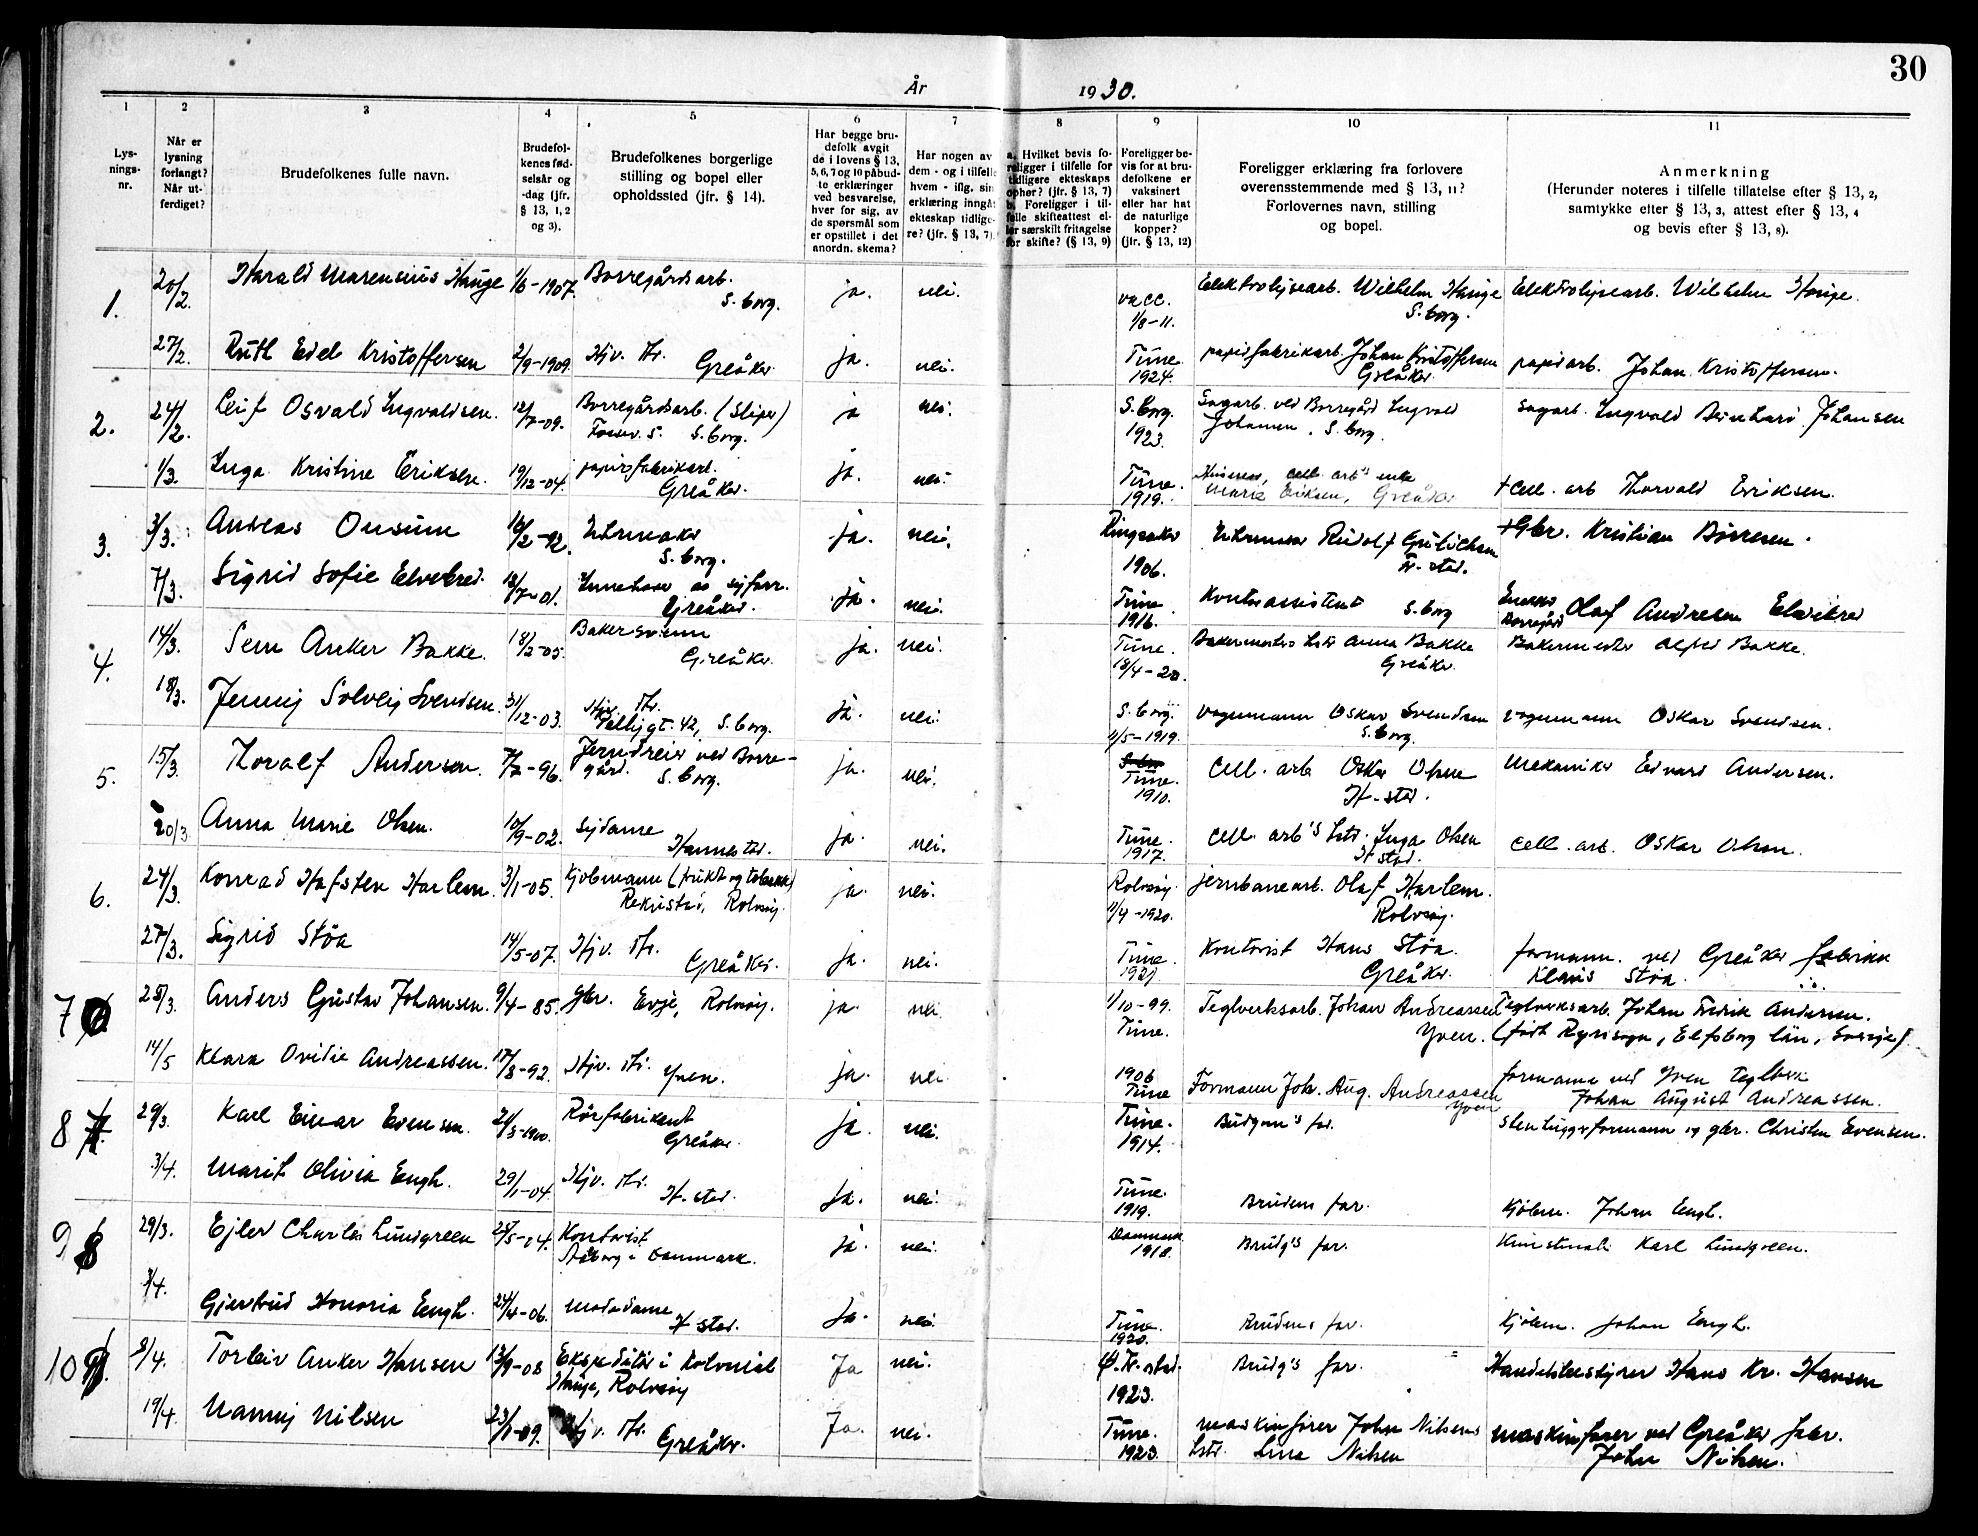 30
År 1930.
1 2 3 4 5 6 7 8 9 10 11
Lysnings-nr.
Når er lysning forlangt? Når utferdiget?
Brudefolkenes fulle navn.
Brudefolkenes fødselsår og -dag (jfr. § 13, 1, 2 og 3).
Brudefolkenes borgerlige stilling og bopel eller opholdssted (jfr. § 14).
Har begge brudefolk avgit de i lovens § 13, 5, 6, 7 og 10 påbudte erklæringer ved besvarelse, hver for sig, av de spørsmål som er opstillet i det anordn. skema?
Har nogen av dem - og i tilfelle hvem - iflg. sin erklæring inngåt ekteskap tidligere? (jfr. § 13, 7)
a. Hvilket bevis foreligger i tilfelle for tidligere ekteskaps ophør? (jfr. § 13, 7) b. Foreligger i tilfelle skifteattest eller særskilt fritagelse for skifte? (§ 13, 9)
Foreligger bevis for at brudefolkene er vaksinert eller har hat de naturlige kopper? (jfr. § 13, 12)
Foreligger erklæring fra forlovere overensstemmende med § 13, 11? Forlovernes navn, stilling og bopel.
Anmerkning (Herunder noteres i tilfelle tillatelse efter § 13, 2, samtykke efter § 13, 3, attest efter § 13, 4 og bevis efter § 13, 8).
1. 20/2. Harald Marensius Hauge 1/6-1907. Borregårdsarb. S.borg. ja. nei. vacc. 1/8-11. Elektrolysearb. Wilhelm Hauge S.borg. Elektrolysearb. Wilhelm Hauge.
27/2. Ruth Edel Kristoffersen 2/9-1909. Hjv. dtr. Greåker. ja. nei. Tune 1924. papirfabrikarb. Johan Kristoffersen Greåker. papirarb. Johan Kristoffersen.
2. 24/2. Leif Osvald Ingvaldsen. 12/7-09. Borregårdsarb. (Sliper) S.borg. ja nei. S.borg. 1923. Sagarb. ved Borregård Ingvald Johansen. S.borg. Sagarb. Ingvald Bernhard Johansen
1/3. Inga Kristine Eriksen. 19/12-04. papirfabrikarb. Greåker. ja. nei. Tune. 1919. cell. arb's enke Marie Eriksen, Greåker + Cell. arb Thorvald Eriksen.
3. 3/3. Andreas Onsum 16/2-92. Urmaker S.borg. ja. nei. Ringsaker 1906. Urmaker Rudolf Fr.stad. + Gbr. Kristian Børresen.
7/3. Sigrid Sofie Elvebred. 18/7-01. Innehaver av syforr. Greåker. ja. nei. Tune 1916. Kontorassistent S.borg Borregård Olaf Andresen Elvebred
4. 14/3. Sem Anker Bakke. 18/2-05. Bakersvenn Greåker. ja. nei. Tune. 18/4-20. Bakermesters hstr Anna Bakke Greåker. Bakermester Alfred Bakke.
18/3. Jenny Solveig Svendsen. 31/12-03. Hjv. dtr. S.borg. ja. nei. S.borg. 11/5-1919. vognmann Oskar Svendsen S.borg. vognmann Oskar Svendsen.
5. 15/3. Thoralf Andersen. 7/2-96. Jerndreier ved Borregård. S.borg. ja. nei. Tune. 1910. Cell. arb Oskar Olsen H-stad. Mekaniker Edvard Andersen.
20/3 Anna Marie Olsen. 10/9-02. Sydame Hannestad. ja. nei. Tune 1917. Cell. arb's hstr. Inga Olsen H.stad. Cell. arb. Oskar Olsen.
6. 24/3. Konrad Hafsten Harlem. 3/1-05. Kjøbmann (frukt og tobakk) Rekustad, Rolvsøy. ja. nei. Rolvsøy. 11/4-1920. jernbanearb. Olaf Harlem. Rolvsøy.
27/3. Sigrid Støa 14/5-07. Hjv. dtr. Greåker. ja. nei. Tune 1921 Kontorist Hans Støa. Greåker. formann. ved Greåker fabrikk Klaus Støa.
7 28/3. Anders Gustav Johansen. 9/4-85. gbr. Evje, Rolvsøy. ja. nei. 1/10-99. Tune. Teglverksarb. Johan Andreassen Yven. Teglverksarb. Johan Fredrik Andersen. (født Ryrsogn, Elfsborg län, Sverige).
14/5 Klara Ovidie Andreassen. 17/8-92. Hjv. dtr. Yven. ja. nei. 1906 Tune Formann Joh. Aug. Andreassen Yven formann ved Yven Teglverk Johan August Andreassen.
8 29/3. Karl Einar Evensen. 21/3-1900. Rørfabrikant Greåker. ja. nei. Tune. 1914. Budgom's far. Stenhuggerformann og gbr. Christen Evensen.
3/4. Marit Olivia Engh. 29/1-04. Hjv. dtr. H.stad. ja. nei. Tune. 1919. Brudens far. Kjøbm. Johan Engh.
9 29/3. Ejler Charles Lundgreen 28/5-04. Kontorist Danmark. ja. nei. Danmark 1918. Brudg's far. Kunstmaler Karl Lundgreen.
3/4. Gjertrud Honoria Engh. 24/4-06. Motedame H.stad. ja. nei. Tune. 1920. Brudens far. Kjøbm. Johan Engh.
10 9/4. Torleiv Anker Hansen 13/9-08 Ekspeditør i Kolonial Hauge, Rolvsøy Ja nei. Fr.stad. 1923. Brudg's far. Handelsbestyrer Hans Kr. Hansen
19/4. Nanny Nilsen 23/1-09. Hjv. dtr. Greåker. Ja. nei. Tune. 1923. Maskinfører John Nilsens hstr. Lina Nilsen maskinfører ved Greåker fabr. John Nilsen.